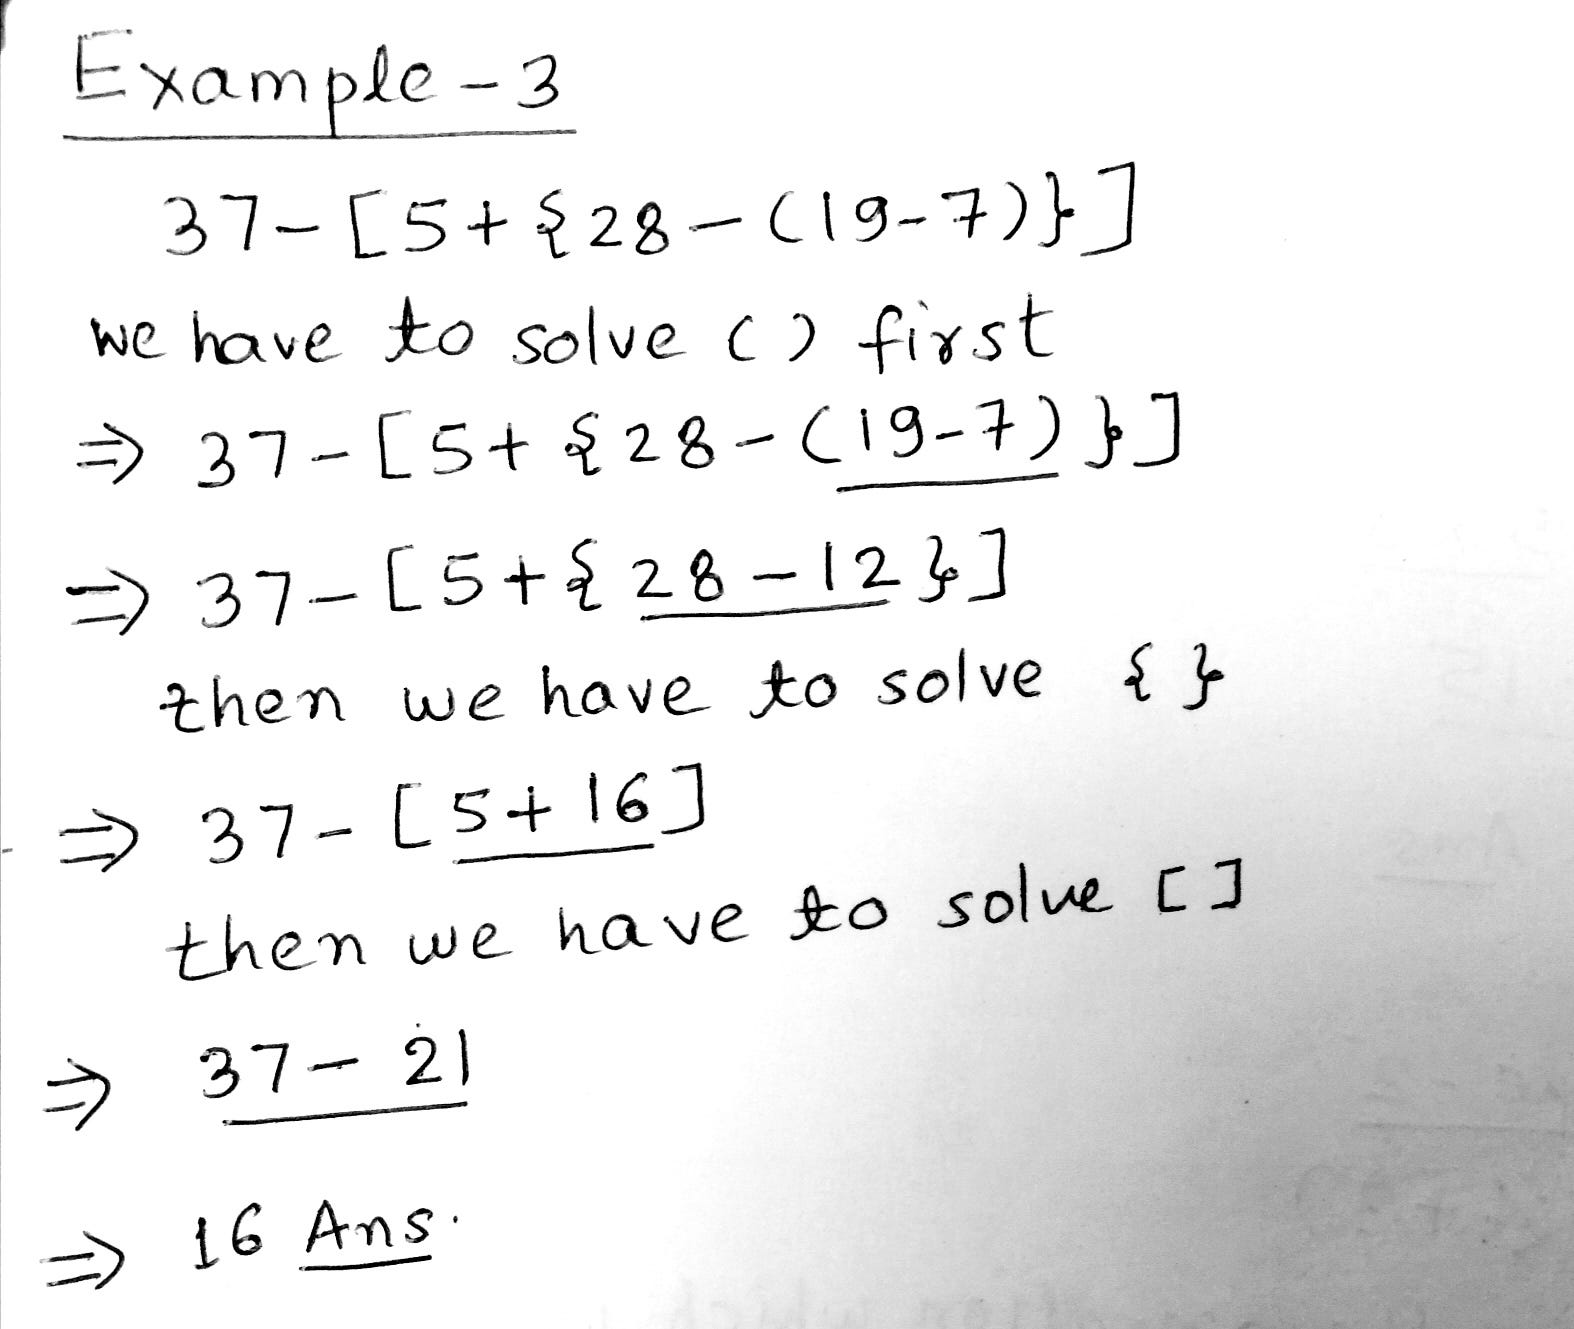 Example-3
37-[5+{28-(19-7)}]
we have to solve () first
⇒ 37-[5+{28-(19-7)}]
⇒ 37-[5+{28-12}]
then we have to solve {}
⇒ 37-[5+16]
then we have to solve []
⇒ 37-21
⇒ 16 Ans.